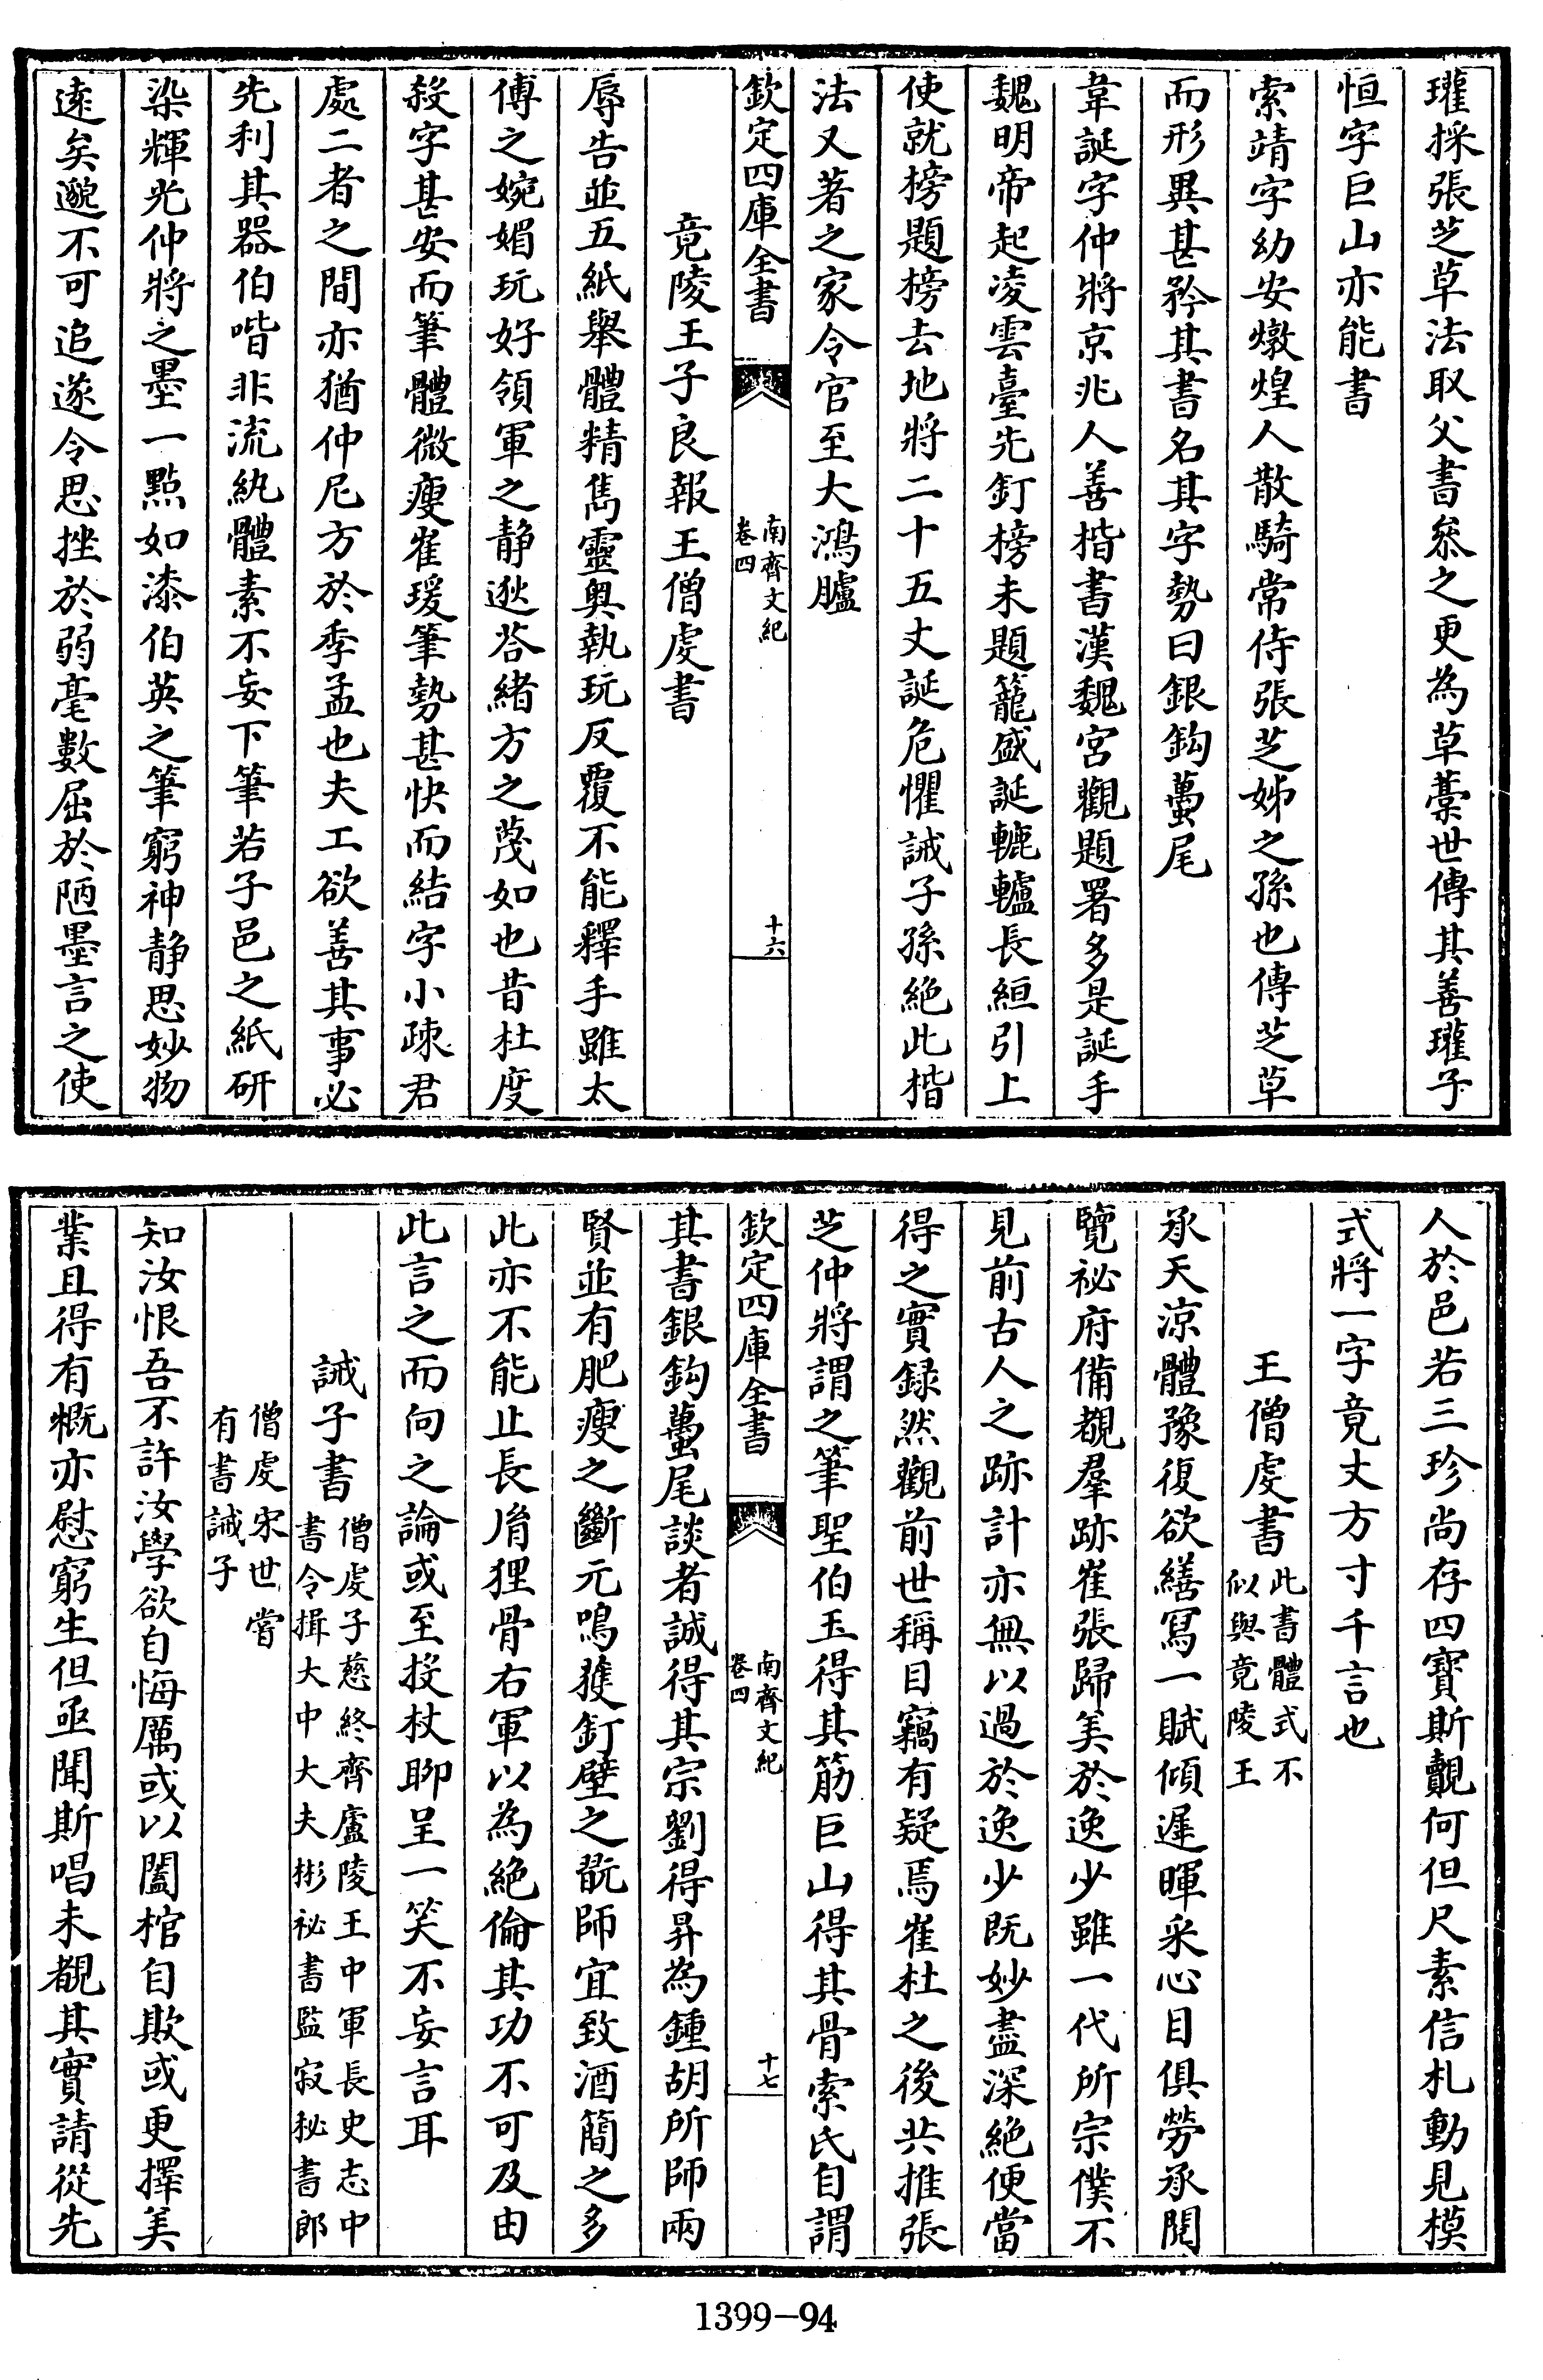 瓘採張芝草法取父書叅之更為草藁世傳其善瓘子
恒字巨山亦能書
索靖字幼安燉煌人散騎常侍張芝姊之孫也傳芝草
而形異甚矜其書名其字勢曰銀鈎蠆尾
韋誕字仲將京兆人善楷書漢魏宮觀題署多是誕手
魏明帝起凌雲臺先釘榜未題籠盛誕轆轤長絙引上
使就榜題榜去地將二十五丈誕危懼誡子孫絶此楷
法又著之家令官至大鴻臚
欽定四庫全書
南齊文紀
卷四
十六
竟陵王子良報王僧虔書
辱告並五紙舉體精雋靈奥執玩反覆不能釋手雖太
傅之婉媚玩好領軍之静逖荅緒方之蔑如也昔杜度
殺字甚安而筆體微瘦崔瑗筆勢甚快而結字小疎君
處二者之間亦猶仲尼方於季孟也夫工欲善其事必
先利其器伯喈非流紈體素不妄下筆若子邑之紙研
染輝光仲將之墨一㸃如漆伯英之筆窮神静思妙物
逺矣邈不可追遂令思挫於弱毫數屈於陋墨言之使
人於邑若三珍尚存四寶斯覿何但尺素信札動見模
式將一字竟丈方寸千言也
王僧虔書
此書體式不
似與竟陵王
承天涼體豫復欲繕冩一賦傾遲暉采心目俱勞承閱
覽祕府備覩羣跡崔張歸美於逸少雖一代所宗僕不
見前古人之跡計亦無以過於逸少既妙盡深絶便當
得之實録然觀前世稱目竊有疑焉崔杜之後共推張
芝仲將謂之筆聖伯玉得其筋巨山得其骨索氏自謂
欽定四庫全書
南齊文紀
卷四
十七
其書銀鈎蠆尾談者誠得其宗劉得昇為鍾胡所師兩
賢並有肥瘦之斷元鳴獲釘壁之翫師宜致酒簡之多
此亦不能止長胤狸骨右軍以為絶倫其功不可及由
此言之而向之論或至投杖聊呈一笑不妄言耳
誡子書
僧虔子慈終齊廬陵王中軍長史志中
書令揖大中大夫彬祕書監寂秘書郎
僧虔宋世嘗
有書誡子
知汝恨吾不許汝學欲自悔厲或以闔棺自欺或更擇美
業且得有慨亦慰窮生但亟聞斯唱未覩其實請從先
1399-94